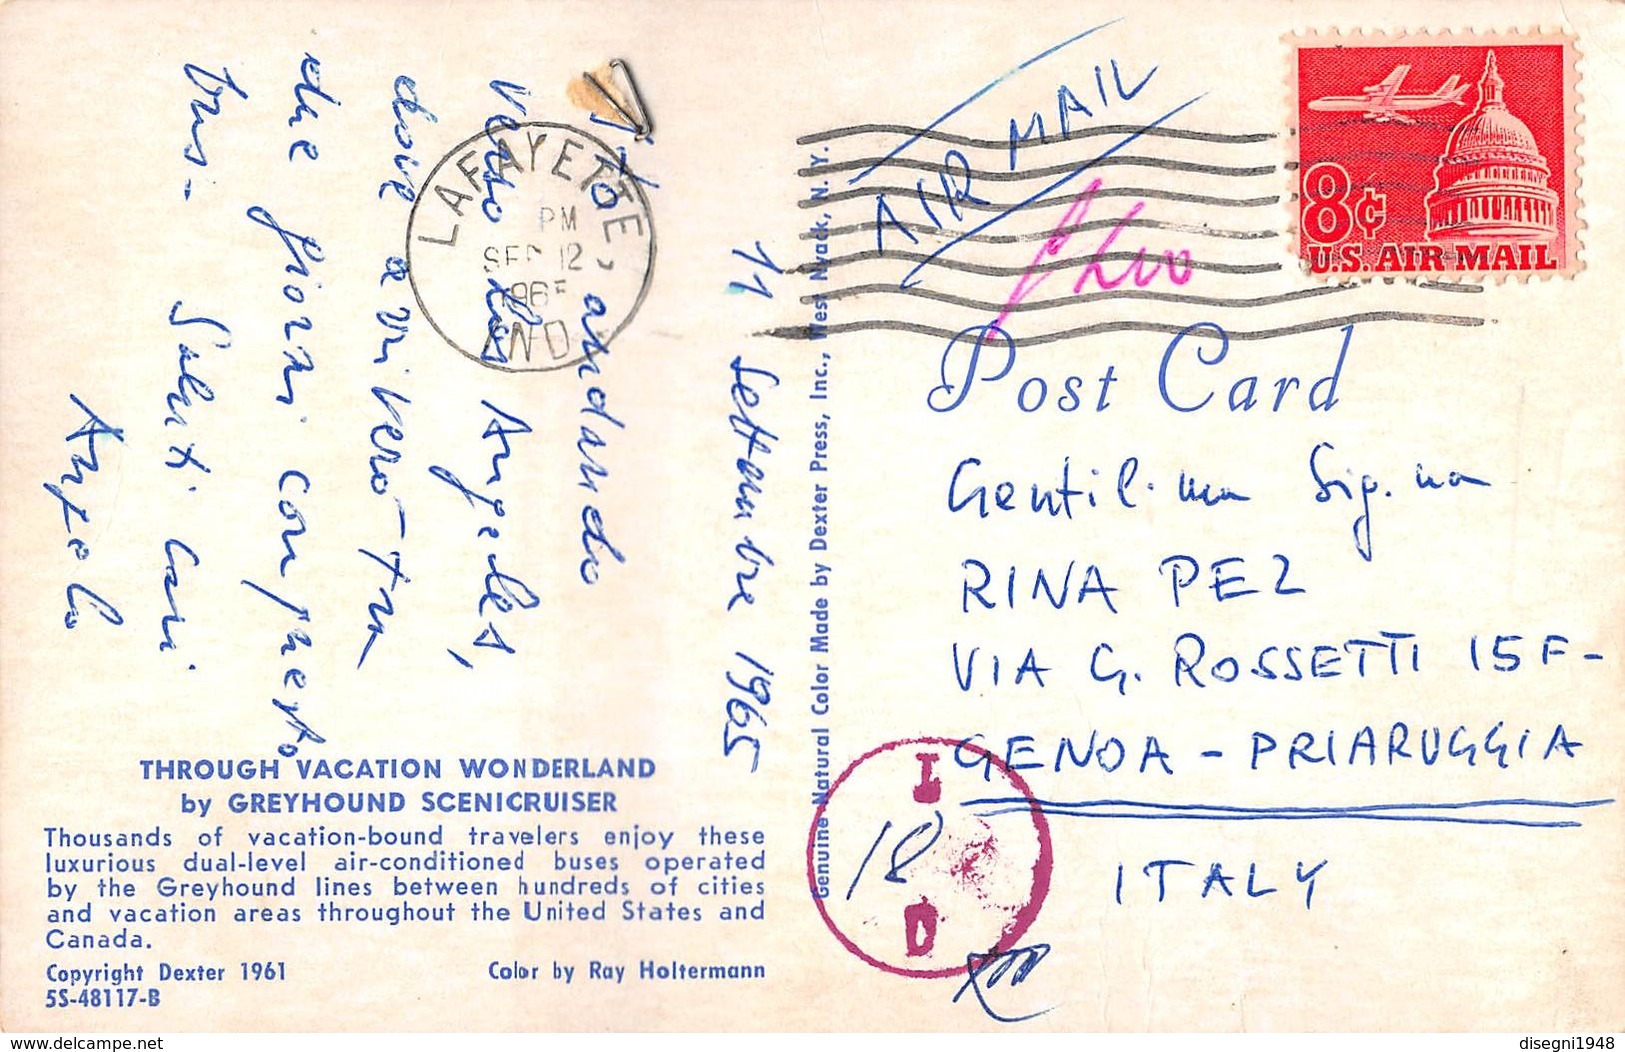 11 Settembre 1965
Sto andando
verso Los Angeles,
dove arriverò tra
due giorni con questo
bus.
Saluti cari
Angelo
LAFAYETTE
PM
SEP 12
1965
IND
THROUGH VACATION WONDERLAND
by GREYHOUND SCENICRUISER
Thousands of vacation-bound travelers enjoy these
luxurious dual-level air-conditioned buses operated
by the Greyhound lines between hundreds of cities
and vacation areas throughout the United States and
Canada.
Copyright Dexter 1961 Color by Ray Holtermann
5S-48117-B
Genuine Natural Color Made by Dexter Press, Inc., West Nyack, N. Y.
AIR MAIL
8¢
U.S. AIR MAIL
Post Card
Gentil.ma Sig.na
RINA PEZ
VIA G. ROSSETTI 15F-
GENOA - PRIARUGGIA
ITALY
18
D
delcampe.net
disegni1948